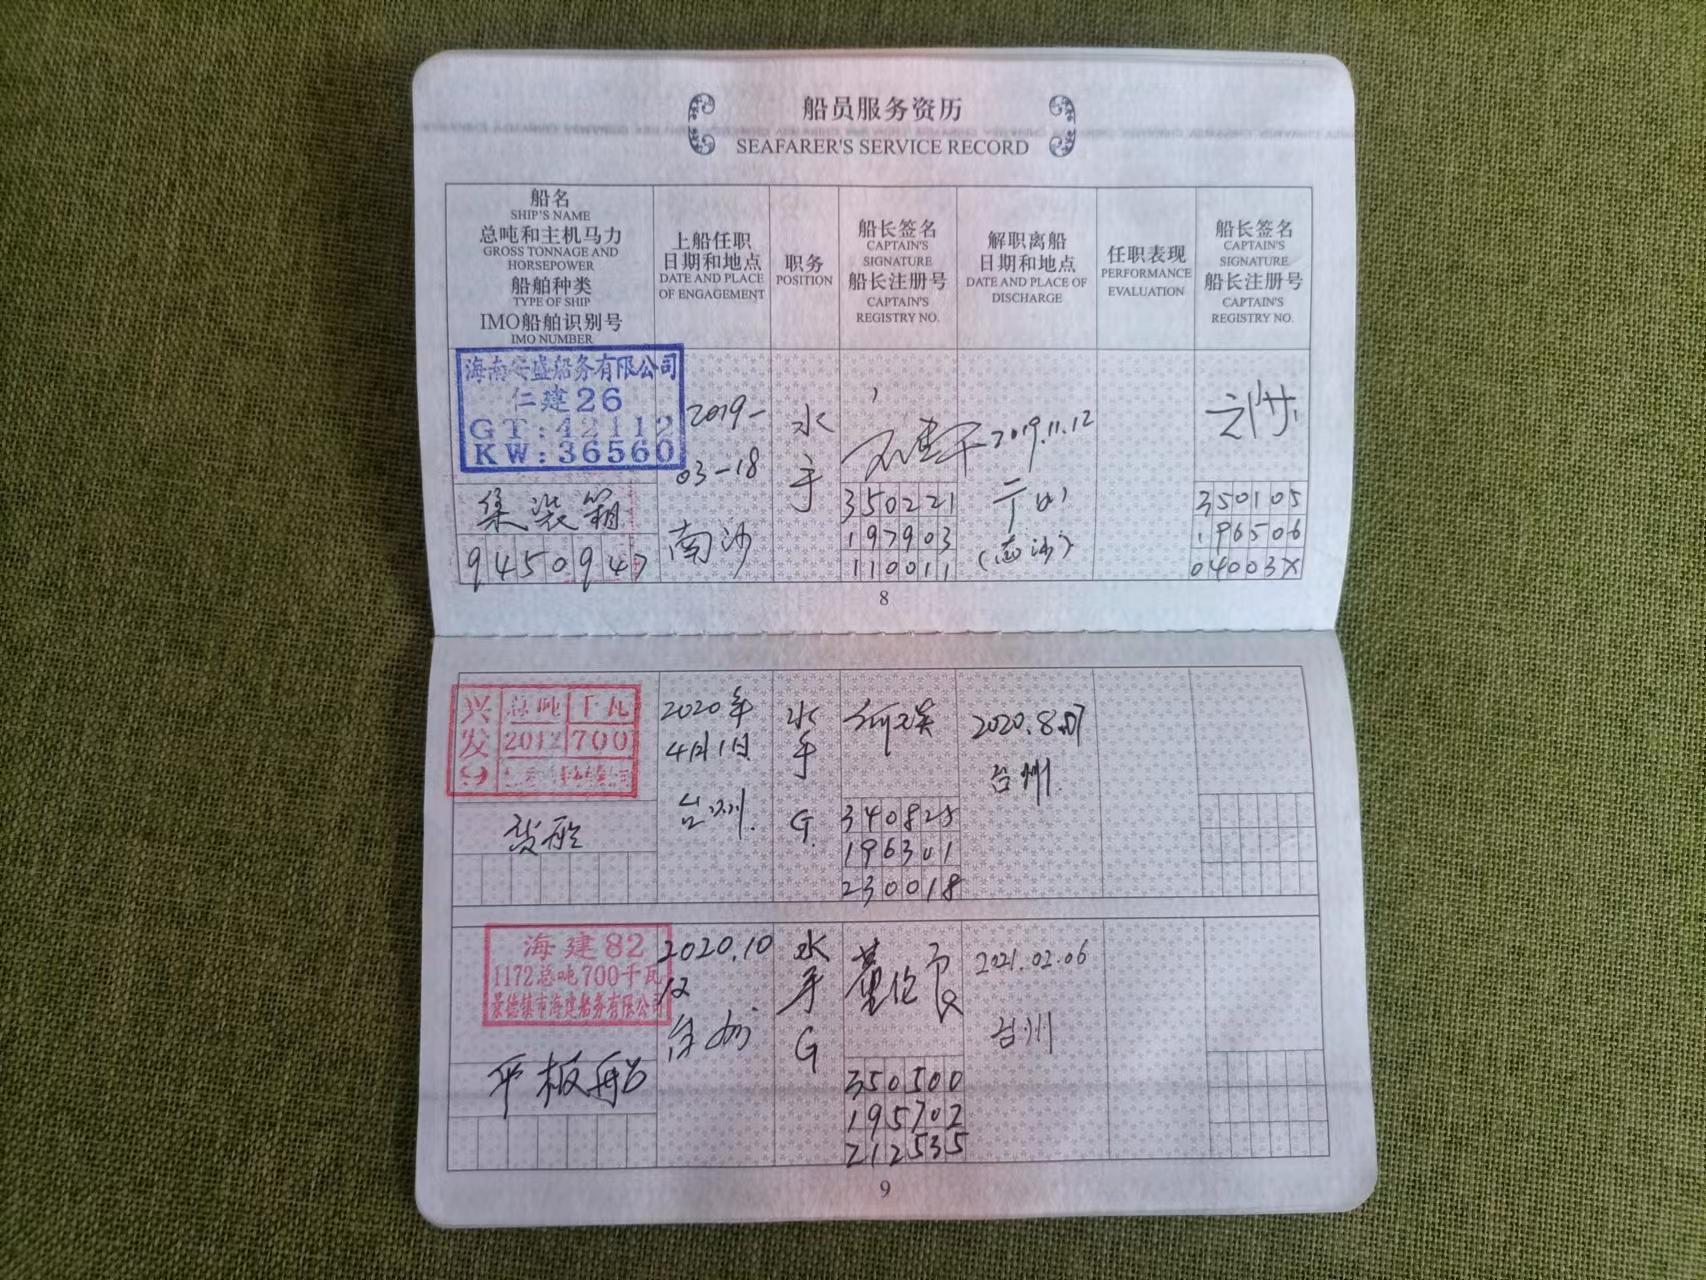 船员服务资历
SEAFARER'S SERVICE RECORD
船名
SHIP'S NAME
总吨和主机马力
GROSS TONNAGE AND
HORSEPOWER
船舶种类
TYPE OF SHIP
IMO船舶识别号
IMO NUMBER
上船任职
日期和地点
DATE AND PLACE
OF ENGAGEMENT
职务
POSITION
船长签名
CAPTAIN'S
SIGNATURE
船长注册号
CAPTAIN'S
REGISTRY NO.
解职离船
日期和地点
DATE AND PLACE OF
DISCHARGE
任职表现
PERFORMANCE
EVALUATION
船长签名
CAPTAIN'S
SIGNATURE
船长注册号
CAPTAIN'S
REGISTRY NO.
海南安盛船务有限公司
仁建26
GT:42112
KW:36560
集装箱
9450947
2019-
03-18
南沙
水
手
350221
197903
110011
2019.11.12
(南沙)
350105
196506
04003X
8
兴
发
总吨
千瓦
2012
700
货船
2020年
4月1日
台州
水
手
G
340825
196301
230018
2020.8.07
台州
海建82
1172总吨700千瓦
景德镇市海建船务有限公司
平板船
2020.10
12
台州
水
手
G
350500
195702
212535
2021.02.06
台州
9